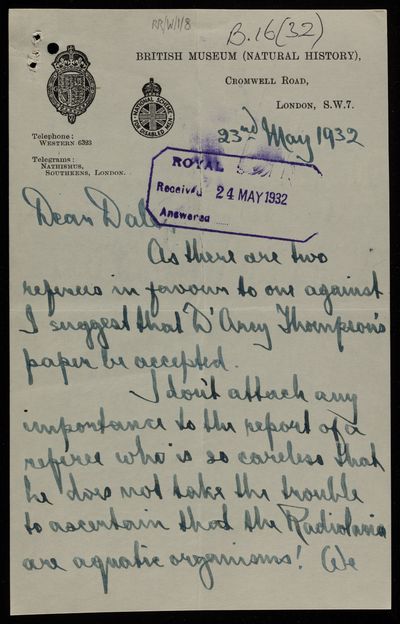 RR/W/1/8
B.16(32)
BRITISH MUSEUM (NATURAL HISTORY),
CROMWELL ROAD,
LONDON, S.W.7.
NATIONAL SCHEME
FOR DISABLED MEN
Telephone:
WESTERN 6323
Telegrams:
NATHISMUS,
SOUTHKENS, LONDON.
23rd May 1932
ROYAL
Received 24 MAY 1932
Answered
Dear Dale,
As there are two
referees in favour to one against
I suggest that D'Arcy Thompson's
paper be accepted.
I don't attach any
importance to the report of a
referee who is so careless that
he does not take the trouble
to ascertain that the Radiolaria
are aquatic organisms! We